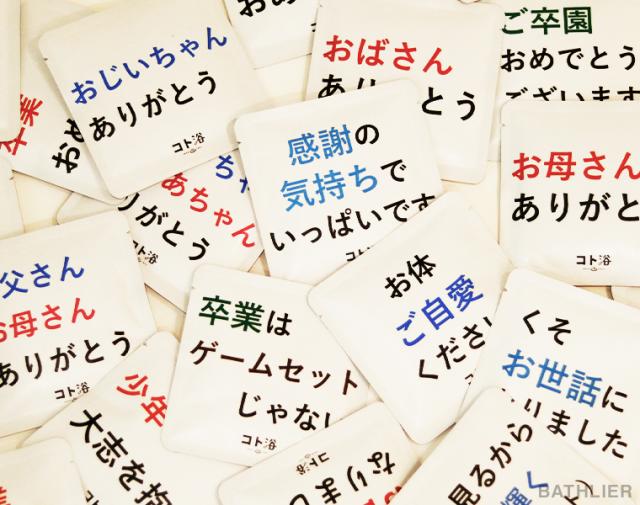 おじいちゃん
ありがとう
コト浴
おばさん
ご卒園
おめでとう
ございます
感謝の
気持ちで
いっぱいです
お母さん
ありがと
コト浴
あちゃん
りがとう
コト浴
父さん
お母さん
ありがとう
コト浴
卒業は
ゲームセット
じゃない
コト浴
お体
ご自愛
くださ
くそ
お世話に
りました
少年
大志を
コト
コト浴
なりまし
見るから
BATHLIER